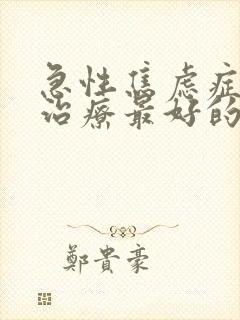 急性焦虑症
治療最好的
鄭貴豪